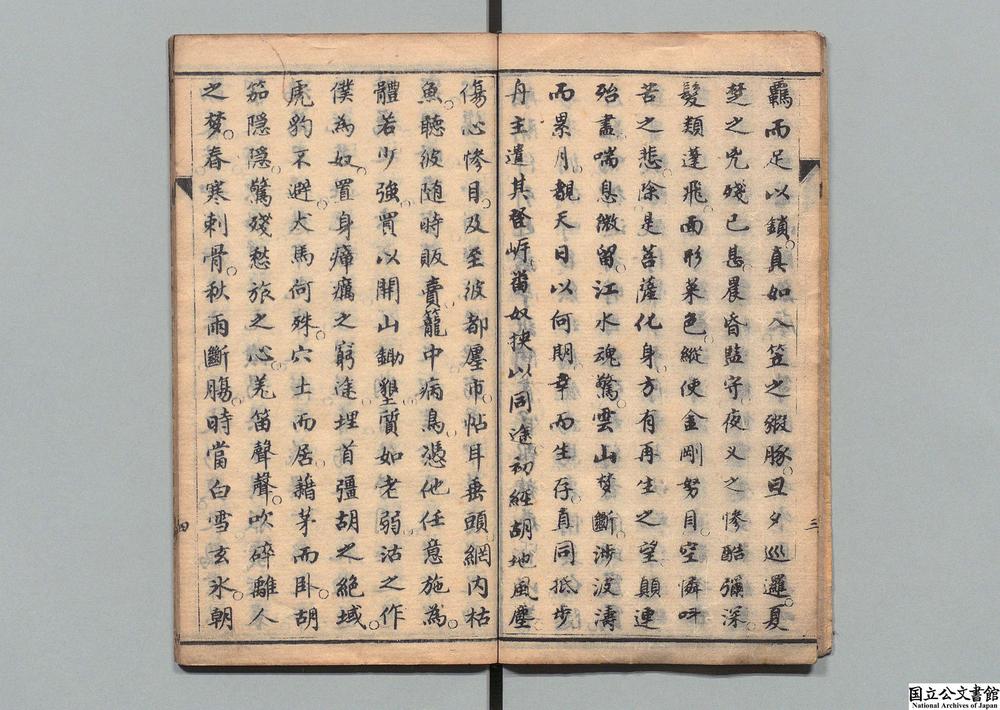 羈而足以鎖真如入笠之豭豚旦夕巡邏夏
楚之兇殘已甚晨昏監守夜义之慘酷彌深
髮類蓬飛面形菜色縱使金剛努目空憐呌
苦之悲除是菩薩化身方有再生之望顛連
殆盡喘息微留江水魂驚雲山梦斷涉波濤
而累月覩天日以何期幸而生存直同抵步
舟主遣其登岍畨奴挾以同途初經胡地風塵
傷心慘目及至彼都廛市帖耳垂頭網内枯
魚聽彼随時販賣籠中病鳥憑他任意施為
體若少強買以開山鋤墾質如老弱沽之作
僕為奴置身瘴癘之窮途埋首彊胡之絶域
虎豹不避犬馬何殊穴土而居藉茅而卧胡
笳隠隠驚殘愁旅之心羌笛聲聲吹碎離人
之梦春寒刺骨秋雨斷膓時當白雪玄氷朝
三
四
国立公文書館
National Archives of Japan